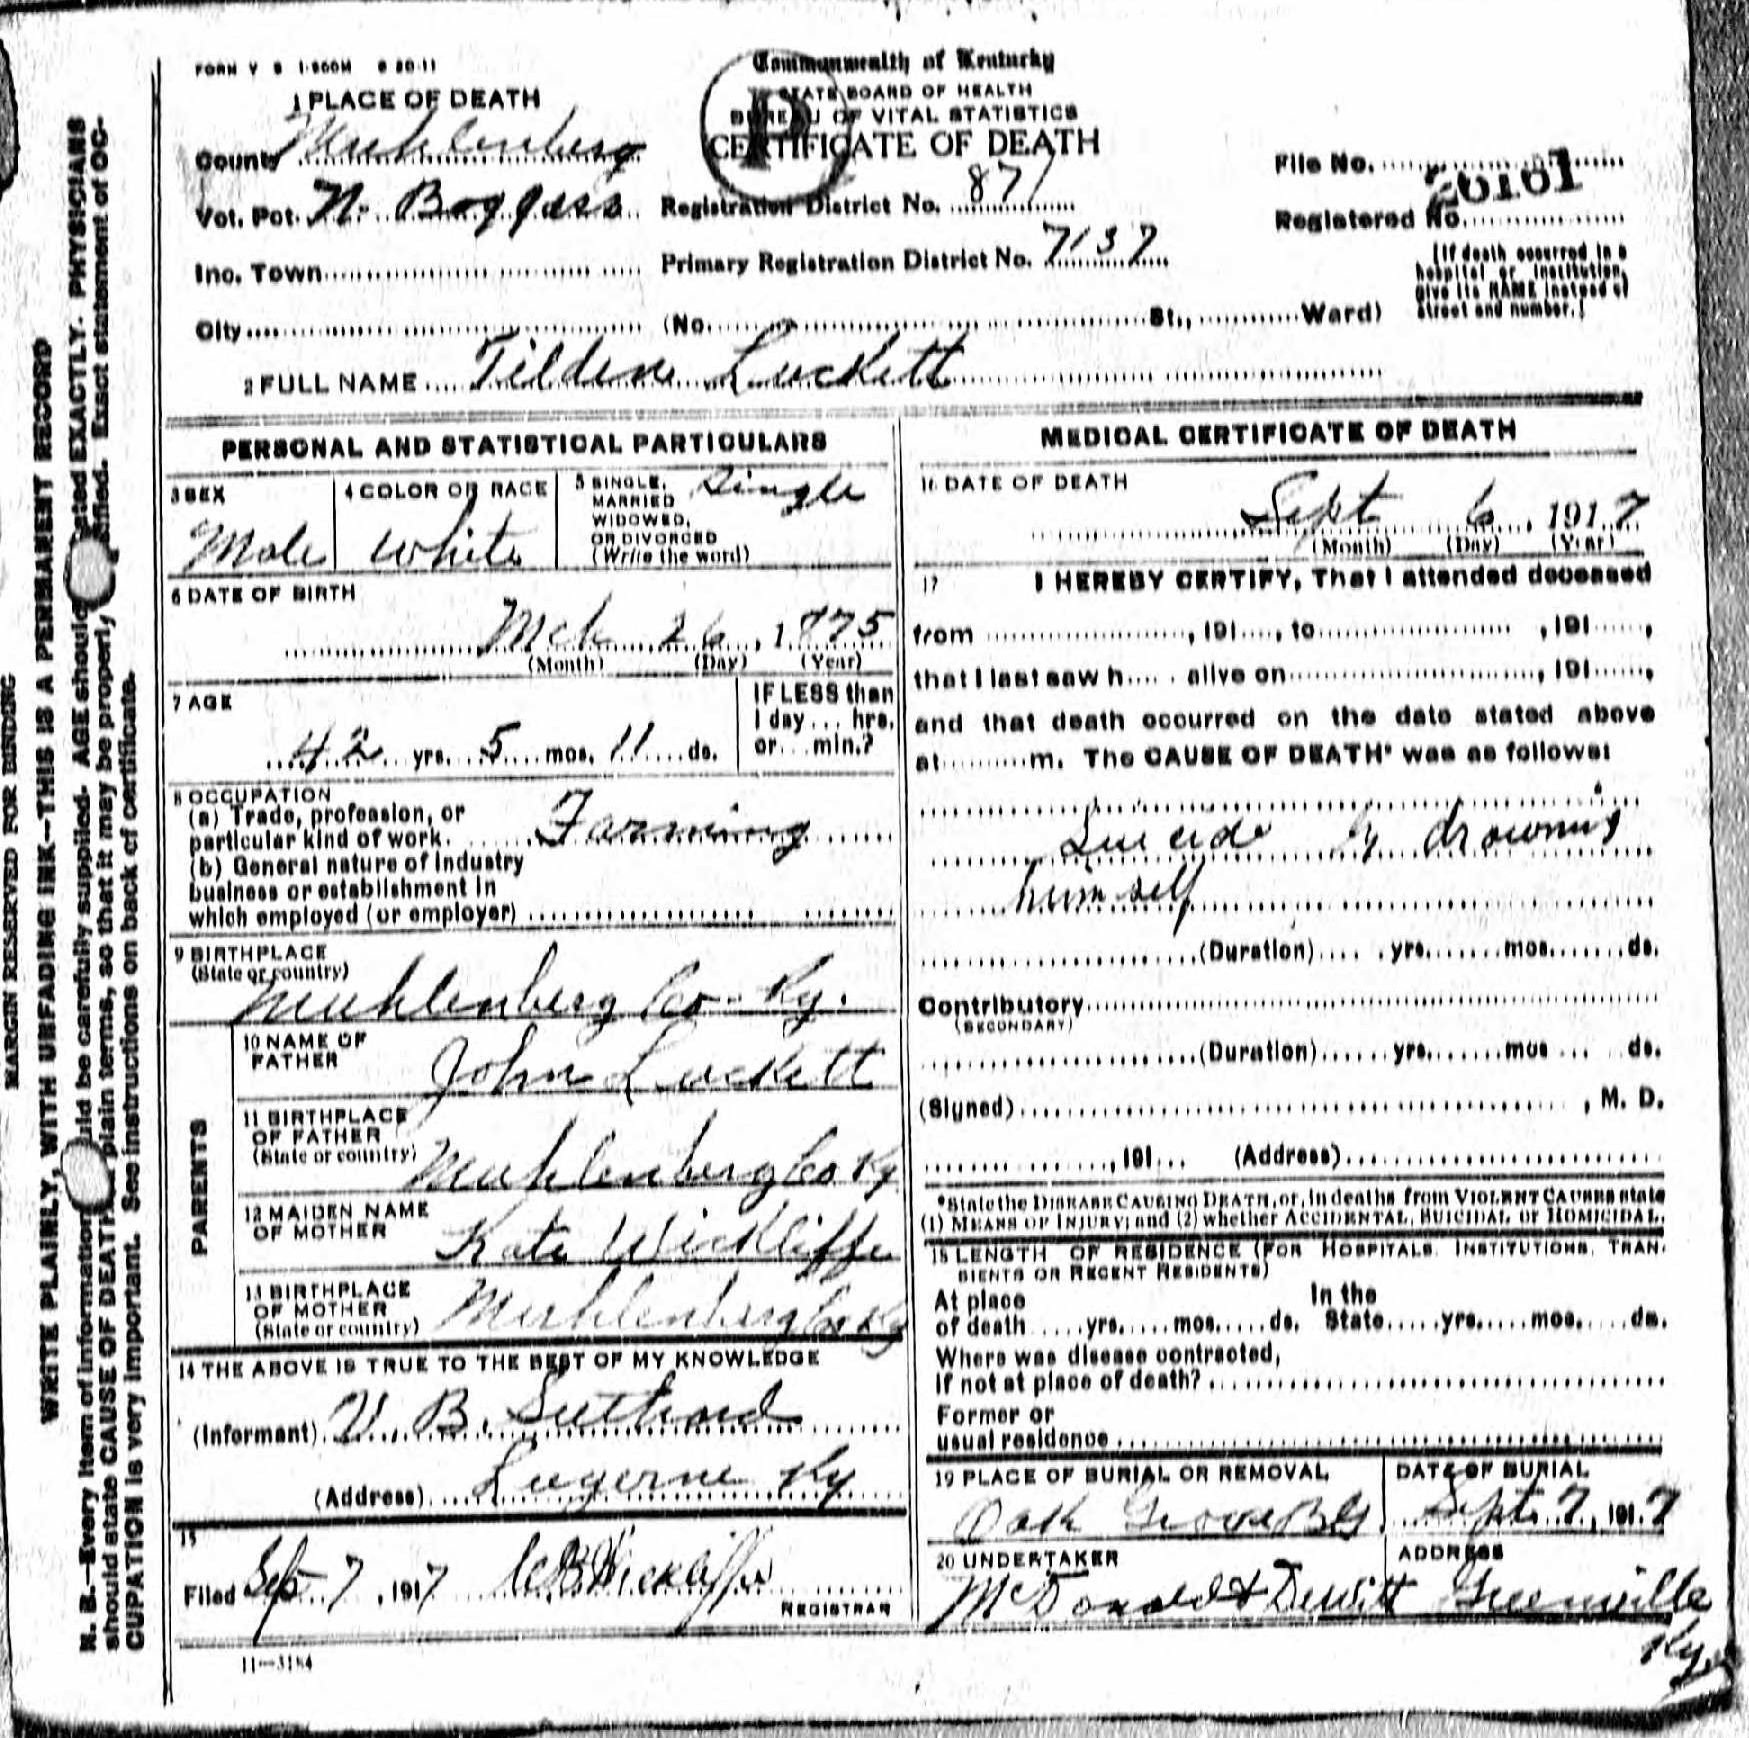 FORM V S 1-500M 6 20-11
Commonwealth of Kentucky
STATE BOARD OF HEALTH
BUREAU OF VITAL STATISTICS
CERTIFICATE OF DEATH
1 PLACE OF DEATH
County Muhlenberg
Vot. Pct. N. Boggess
Inc. Town
City
Registration District No. 871
Primary Registration District No. 7137
(No. St., Ward)
File No. 26161
Registered No.
(If death occurred in a
hospital or institution,
give its NAME instead of
street and number.)
2 FULL NAME Tilden Luckett
PERSONAL AND STATISTICAL PARTICULARS
3 SEX
Male
4 COLOR OR RACE
White
5 SINGLE,
MARRIED
WIDOWED,
OR DIVORCED
(Write the word)
Single
6 DATE OF BIRTH
Mch 26, 1875
(Month) (Day) (Year)
7 AGE
42 yrs. 5 mos. 11 ds.
IF LESS than
1 day... hrs.
or... min.?
8 OCCUPATION
(a) Trade, profession, or
particular kind of work. Farming
(b) General nature of industry
business or establishment in
which employed (or employer)
9 BIRTHPLACE
(State or country)
Muhlenberg Co. Ky.
PARENTS
10 NAME OF
FATHER
John Luckett
11 BIRTHPLACE
OF FATHER
(State or country)
Muhlenberg Co Ky
12 MAIDEN NAME
OF MOTHER
Kate Wickliffe
13 BIRTHPLACE
OF MOTHER
(State or country)
Muhlenberg Co Ky
14 THE ABOVE IS TRUE TO THE BEST OF MY KNOWLEDGE
(Informant) V. B.
(Address) Luzerne Ky
15
Filed Sep 7, 1917 Wickliffe
REGISTRAR
11-3184
MEDICAL CERTIFICATE OF DEATH
16 DATE OF DEATH
Sept 6, 1917
(Month) (Day) (Year)
17 I HEREBY CERTIFY, That I attended deceased
from , 191 , to , 191 ,
that I last saw h alive on , 191 ,
and that death occurred on the date stated above
at m. The CAUSE OF DEATH* was as follows:
Suicide by drowning
himself
(Duration) yrs. mos. ds.
Contributory
(SECONDARY)
(Duration) yrs. mos ds.
(Signed) , M. D.
, 191 (Address)
*State the DISEASE CAUSING DEATH, or, in deaths from VIOLENT CAUSES state
(1) MEANS OF INJURY; and (2) whether ACCIDENTAL, SUICIDAL or HOMICIDAL.
18 LENGTH OF RESIDENCE (FOR HOSPITALS, INSTITUTIONS, TRAN-
SIENTS OR RECENT RESIDENTS)
At place In the
of death yrs. mos. ds. State yrs. mos. ds.
Where was disease contracted,
if not at place of death?
Former or
usual residence
19 PLACE OF BURIAL OR REMOVAL
Oak Grove
DATE OF BURIAL
Sept. 7, 1917
20 UNDERTAKER
McDonald & Dewitt
ADDRESS
Greenville
Ky.
MARGIN RESERVED FOR BINDING
WRITE PLAINLY, WITH UNFADING INK—THIS IS A PERMANENT RECORD
N. B.—Every item of information should be carefully supplied. AGE should be stated EXACTLY. PHYSICIANS
should state CAUSE OF DEATH in plain terms, so that it may be properly classified. Exact statement of OC-
CUPATION is very important. See instructions on back of certificate.